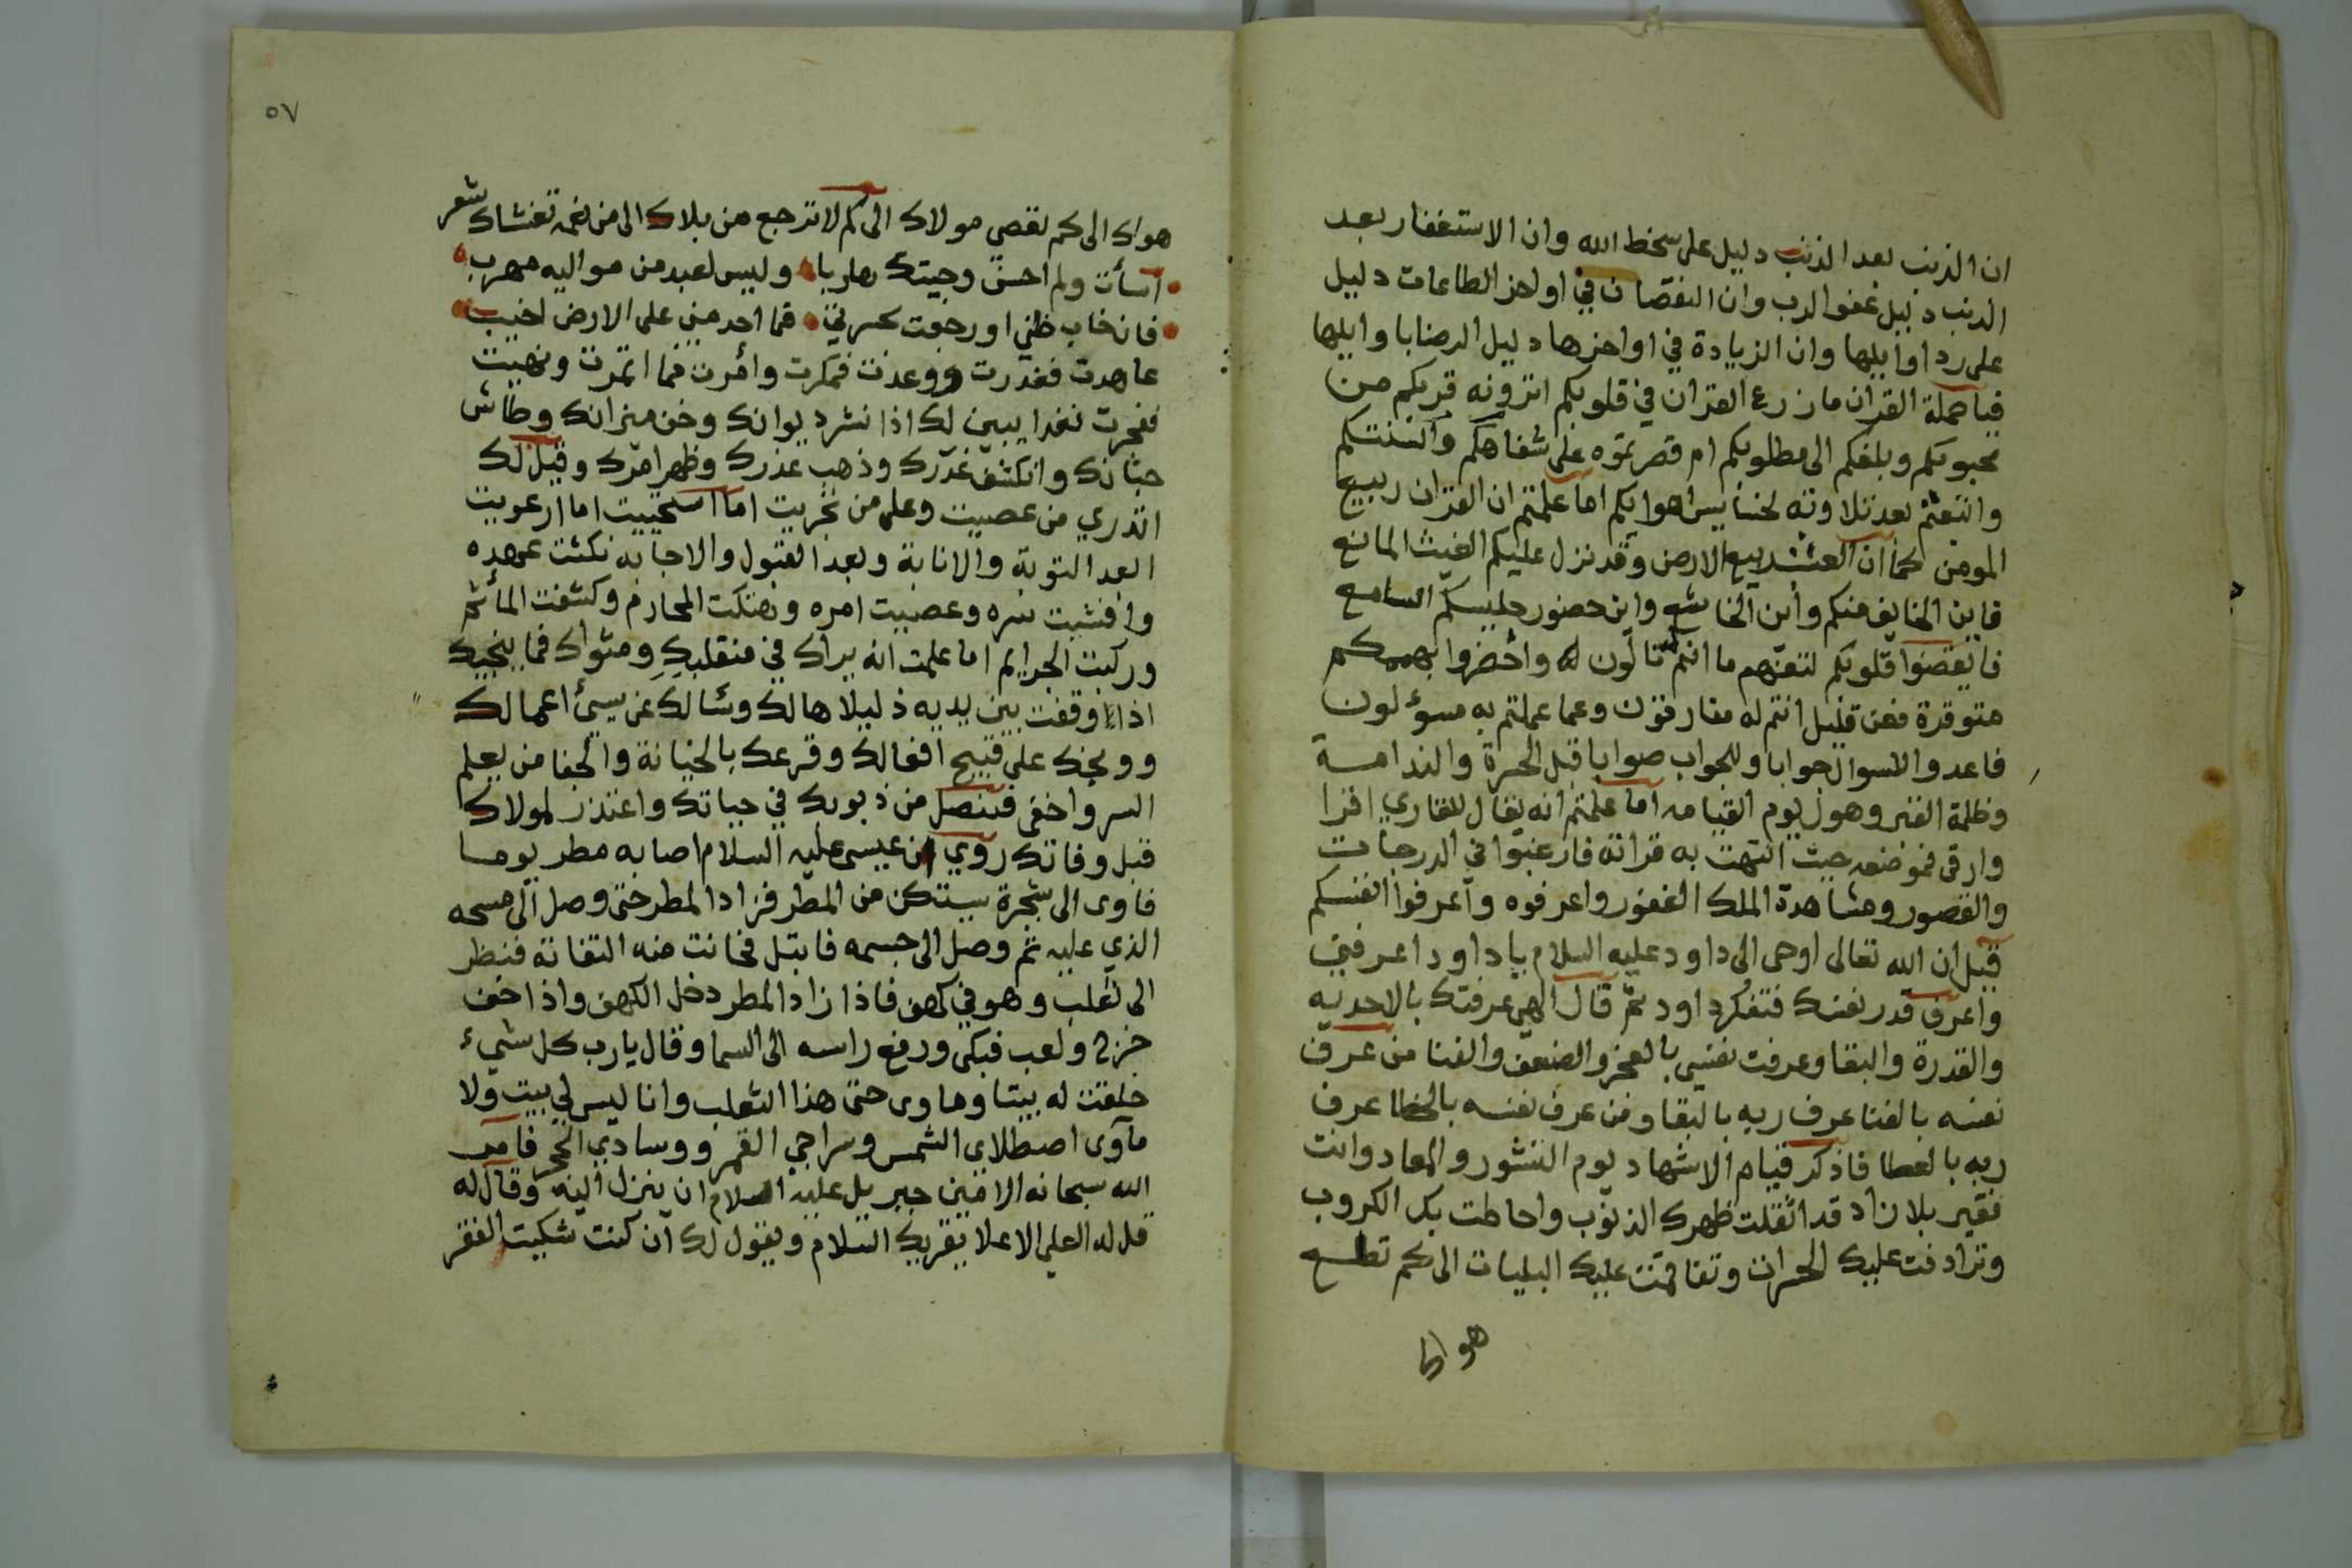 ان الذنب بعد الذنب دليل على سخط الله وان الاستغفار بعد
الذنب دليل عفو الرب وان النقصان في اواخر الطاعات دليل
على رد اوايلها وان الزيادة في اواخرها دليل الرضا باوايلها
فيا حملة القران ما زرع القران في قلوبكم اترونه قربكم من
محبوبكم وبلغكم الى مطلوبكم ام قصرتموه على شفاهكم والسنتكم
واتبعتم بعد تلاوته لخسايس اهوايكم اما علمتم ان القران ربيع
المومن كما ان الغيث ربيع الارض وقد نزل عليكم الغيث المانع
فاين الخايف منكم واين الخاشع واين حضور جليسكم السامع
فايقضوا قلوبكم لتفهم ما انتم تالون له واحضروا بهممكم
متوقدة فعن قليل انتم له مفارقون وعما عملتم به مسؤلون
فاعدوا للسوال جوابا وللجواب صوابا قبل الحسرة والندامة
وظلمة القبر وهول يوم القيامه اما علمتم انه يقال للقاري اقرا
وارقى فموضعه حيث انتهت به قراته فارغبوا في الدرجات
والقصور ومشاهدة الملك الغفور واعرفوه واعرفوا انفسكم
قيل ان الله تعالى اوحى الى داود عليه السلام يا داود اعرفني
واعرف قدر نفسك فتفكر داود ثم قال الهي عرفتك بالاحديه
والقدرة والبقا وعرفت نفسي بالعجز والضعف والفنا من عرف
نفسه بالفنا عرف ربه بالبقا ومن عرف نفسه بالخطا عرف
ربه بالعطا فاذكر قيام الاشهاد يوم النشور والمعاد وانت
فقير بلا زاد قد اثقلت ظهرك الذنوب واحاطت بك الكروب
وترادفت عليك الحسرات وتفاقمت عليك البليات الى كم تطع
هواك
٥٧
هواك الى كم تعصي مولاك الى كم لا ترجع من بلاك الى من نعمه تغشاك شعر
اسأت ولم احسن وجيتك هاربا وليس لعبد من مواليه مهرب
فان خاب ظني او رجعت بحسرتي فما احد مني على الارض اخيب
عاهدت فغدرت ووعدت فمكرت وأمرت فما اتمرت ونهيت
ففجرت فغدا يبين لك اذا نشر ديوانك وخف ميزانك وطاش
جثانك وانكشف غدرك وذهب عذرك وظهر امرك وقيل لك
اتدري من عصيت وعلى من تجريت اما استحييت اما ارعويت
ابعد التوبة والانابة وبعد القبول والاجابه نكثت عهده
وافشيت سره وعصيت امره وهتكت المحارم وكشفت المأثم
وركبت الجرايم اما علمت انه يراك في منقلبك ومثواك فما ينجيك
اذا وقفت بين يديه ذليلا هالك وسالك عن سيئ اعمالك
ووبخك على قبيح افعالك وقرعك بالخيانة والجفا من يعلم
السر واخفى فتنصل من ذنوبك في حياتك واعتذر لمولاك
قبل وفاتك روي ان عيسى عليه السلام اصابه مطر يوما
فاوى الى شجرة يستكن من المطر فزاد المطر حتى وصل الى مسحه
الذي عليه ثم وصل الى جسمه فابتل فحانت منه التفاتة فنظر
الى ثعلب وهو في كهف فاذا زاد المطر دخل الكهف واذا خف
خرج ولعب فبكى ورفع راسه الى السما وقال يا رب كل شيء
خلقت له بيتا وماوى حتى هذا الثعلب وانا ليس لي بيت ولا
مآوى اصطلاى الشمس وسراجي القمر ووسادي الحجر فامر
الله سبحانه الامين جبريل عليه السلام ان ينزل اليه وقال له
قل له العلي الاعلا يقريك السلام ويقول لك ان كنت شكيت الفقر